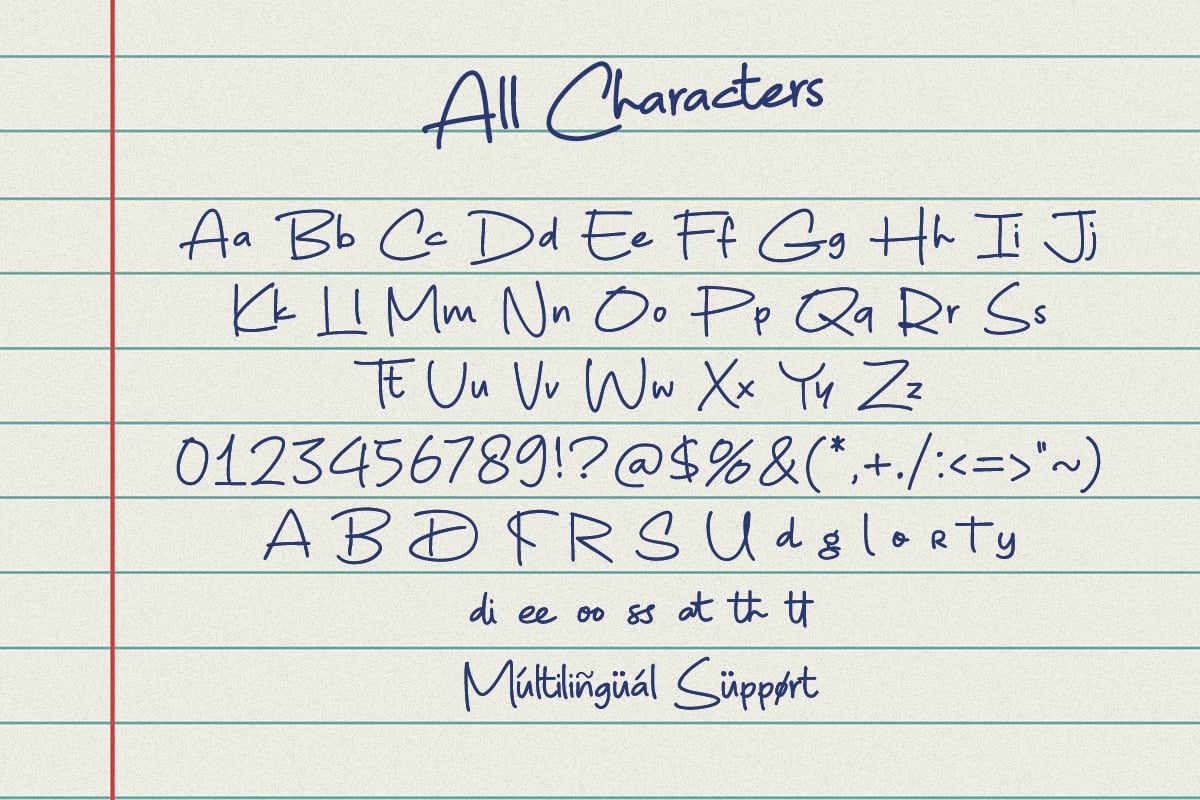 All Characters
Aa Bb Cc Dd Ee Ff Gg Hh Ii Jj
Kk Ll Mm Nn Oo Pp Qq Rr Ss
Tt Uu Vv Ww Xx Yy Zz
0123456789!?@$%&(*,+./:<=>"~)
A B D F R S U d g l o R T y
di ee oo ss at th tt
Múltiliñgüál Süppørt